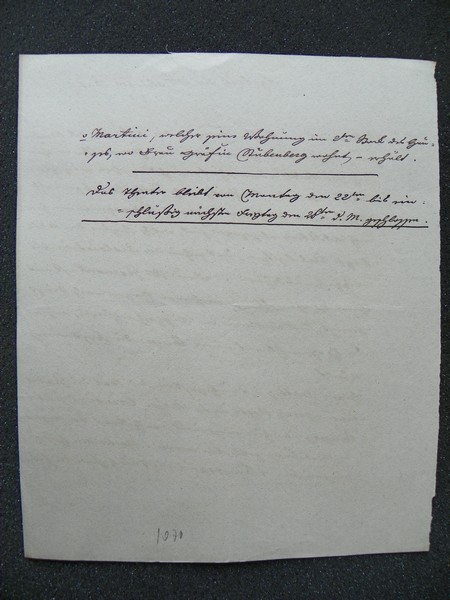 o Martini, welcher seine Wohnung im 2ten Stock des Hau-
ses, wo Frau Gräfin Stubenberg wohnt, – erhält.
Das Theater bleibt von Montag den 22ten bis ein-
schlüßig nächsten Freytag den 26ten d. M. geschlossen.
1070